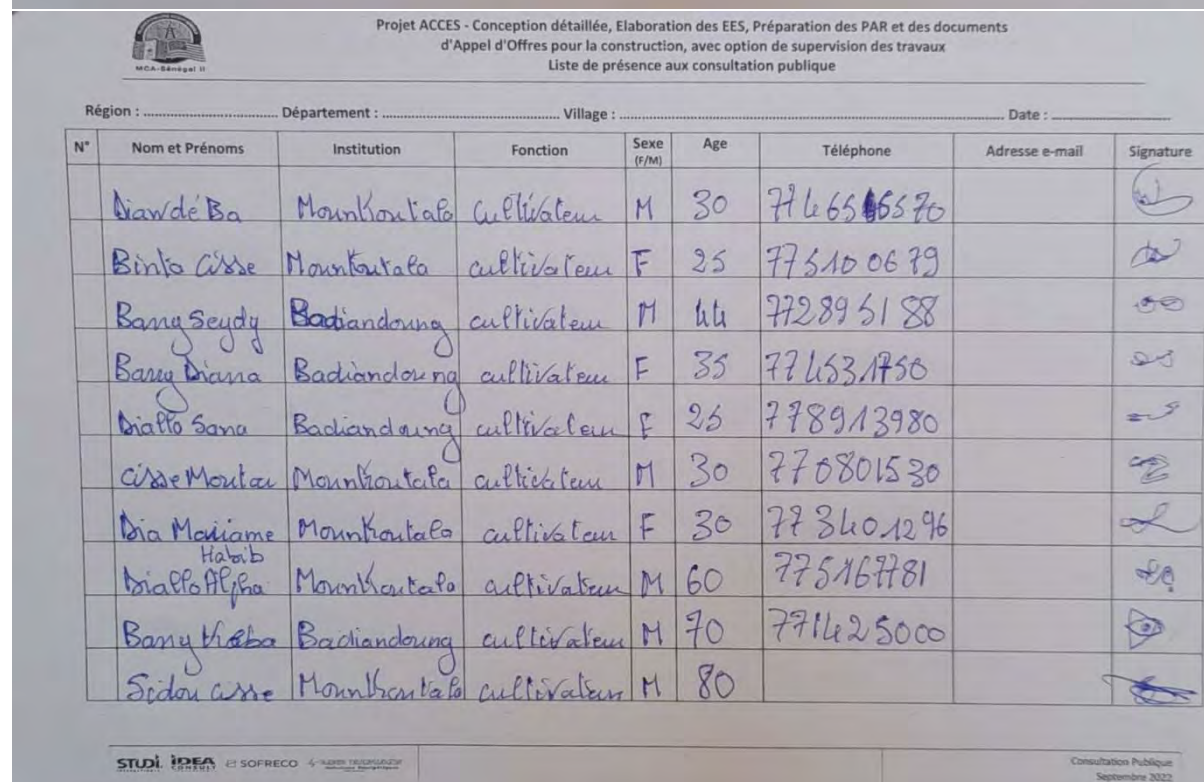 MCA-Sénégal II
Projet ACCES - Conception détaillée, Elaboration des EES, Préparation des PAR et des documents
d'Appel d'Offres pour la construction, avec option de supervision des travaux
Liste de présence aux consultation publique
Région : ........ Département : ........ Village : ........ Date : ........
N° Nom et Prénoms Institution Fonction Sexe (F/M) Age Téléphone Adresse e-mail Signature
Diawdé Ba Mounkoutala cultivateur M 30
Binta Cisse Mounkoutala cultivateur F 25 775100679
Bany Seydy Badiandoung cultivateur M 44 772895188
Bany Diana Badiandoung cultivateur F 35 774531750
Diallo Sana Badiandoung cultivateur F 25 778913980
Cisse Moutar Mounkoutala cultivateur M 30 770801530
Dia Mariame Mounkoutala cultivateur F 30 773401296
Diallo Alpha Habib Mounkoutala cultivateur M 60 775167781
Bany Kéba Badiandoung cultivateur M 70 771425000
Sidou Cisse Mounkoutala cultivateur M 80
STUDI IDEA CONSULT SOFRECO
Consultation Publique
Septembre 2022